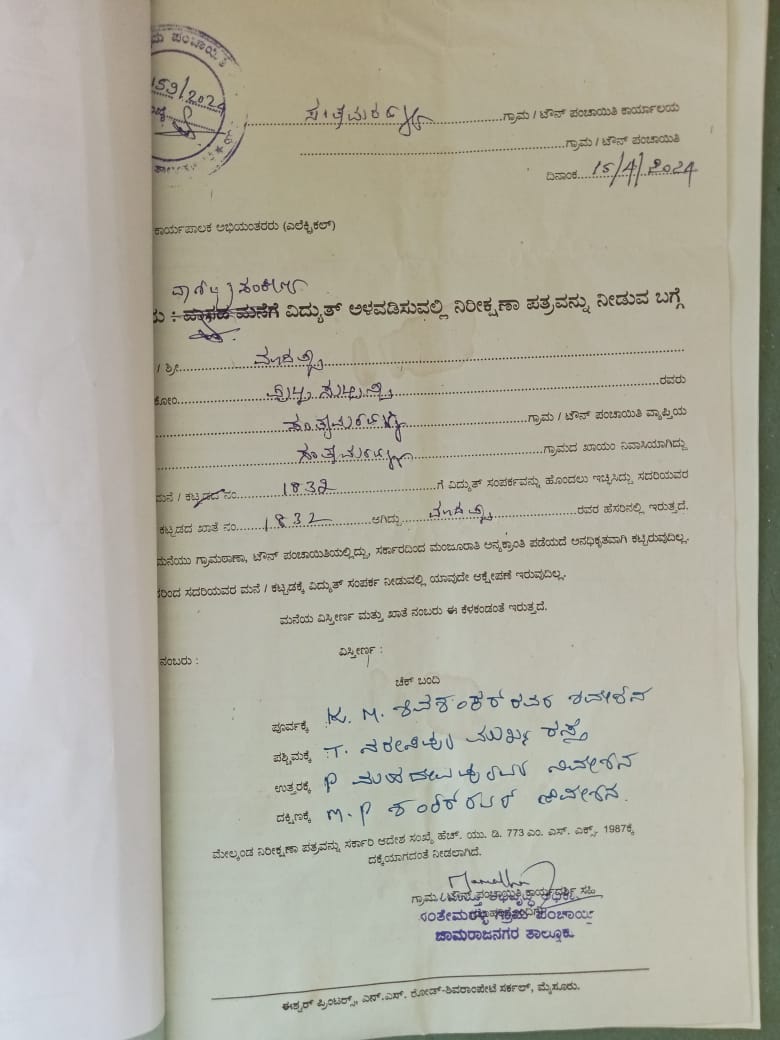 ಮ ಪಂಚಾಯಿತಿ
159/2024
ಸಂತೇಮರಹಳ್ಳಿ ಗ್ರಾಮ / ಟೌನ್ ಪಂಚಾಯಿತಿ ಕಾರ್ಯಾಲಯ
ಗ್ರಾಮ / ಟೌನ್ ಪಂಚಾಯಿತಿ
ದಿನಾಂಕ 15/4/2024
ಕಾರ್ಯಪಾಲಕ ಅಭಿಯಂತರರು (ಎಲೆಕ್ಟ್ರಿಕಲ್)
ಮನೆಗೆ ವಿದ್ಯುತ್ ಅಳವಡಿಸುವಲ್ಲಿ ನಿರೀಕ್ಷಣಾ ಪತ್ರವನ್ನು ನೀಡುವ ಬಗ್ಗೆ
/ ಶ್ರೀ
ಕೋಂ ರವರು
ಗ್ರಾಮ / ಟೌನ್ ಪಂಚಾಯಿತಿ ವ್ಯಾಪ್ತಿಯ
ಗ್ರಾಮದ ಖಾಯಂ ನಿವಾಸಿಯಾಗಿದ್ದು
ಮನೆ / ಕಟ್ಟಡದ ನಂ. 1832 ಗೆ ವಿದ್ಯುತ್ ಸಂಪರ್ಕವನ್ನು ಹೊಂದಲು ಇಚ್ಛಿಸಿದ್ದು ಸದರಿಯವರ
ಕಟ್ಟಡದ ಖಾತೆ ನಂ. 1832 ಆಗಿದ್ದು ರವರ ಹೆಸರಿನಲ್ಲಿ ಇರುತ್ತದೆ.
ಮನೆಯು ಗ್ರಾಮಠಾಣಾ, ಟೌನ್ ಪಂಚಾಯಿತಿಯಲ್ಲಿದ್ದು, ಸರ್ಕಾರದಿಂದ ಮಂಜೂರಾತಿ ಅನ್ಯಕ್ರಾಂತಿ ಪಡೆಯದೆ ಅನಧಿಕೃತವಾಗಿ ಕಟ್ಟಿರುವುದಿಲ್ಲ.
ದರಿಂದ ಸದರಿಯವರ ಮನೆ / ಕಟ್ಟಡಕ್ಕೆ ವಿದ್ಯುತ್ ಸಂಪರ್ಕ ನೀಡುವಲ್ಲಿ ಯಾವುದೇ ಆಕ್ಷೇಪಣೆ ಇರುವುದಿಲ್ಲ.
ಮನೆಯ ವಿಸ್ತೀರ್ಣ ಮತ್ತು ಖಾತೆ ನಂಬರು ಈ ಕೆಳಕಂಡಂತೆ ಇರುತ್ತದೆ.
ನಂಬರು : ವಿಸ್ತೀರ್ಣ :
ಚೆಕ್ ಬಂದಿ
ಪೂರ್ವಕ್ಕೆ K. M. ಶಿವಶಂಕರ್ ರವರ ನಿವೇಶನ
ಪಶ್ಚಿಮಕ್ಕೆ T. ನರಸೀಪುರ ಮುಖ್ಯ ರಸ್ತೆ
ಉತ್ತರಕ್ಕೆ P ನಿವೇಶನ
ದಕ್ಷಿಣಕ್ಕೆ M. P ಶಂಕರ್ ರವರ ನಿವೇಶನ.
ಮೇಲ್ಕಂಡ ನಿರೀಕ್ಷಣಾ ಪತ್ರವನ್ನು ಸರ್ಕಾರಿ ಆದೇಶ ಸಂಖ್ಯೆ ಹೆಚ್. ಯು. ಡಿ. 773 ಎಂ. ಎಸ್. ಎಕ್ಸ್. 1987ಕ್ಕೆ
ದಕ್ಕೆಯಾಗದಂತೆ ನೀಡಲಾಗಿದೆ.
ಗ್ರಾಮ / ಟೌನ್ ಪಂಚಾಯಿತಿ ಕಾರ್ಯದರ್ಶಿ ಸಹಿ
ಸಂತೇಮರಳ್ಳಿ ಗ್ರಾಮ ಪಂಚಾಯಿತಿ
ಚಾಮರಾಜನಗರ ತಾಲ್ಲೂಕು.
ಈಶ್ವರ್ ಪ್ರಿಂಟರ್ಸ್, ಎನ್.ಎಸ್. ರೋಡ್-ಶಿವರಾಂಪೇಟೆ ಸರ್ಕಲ್, ಮೈಸೂರು.